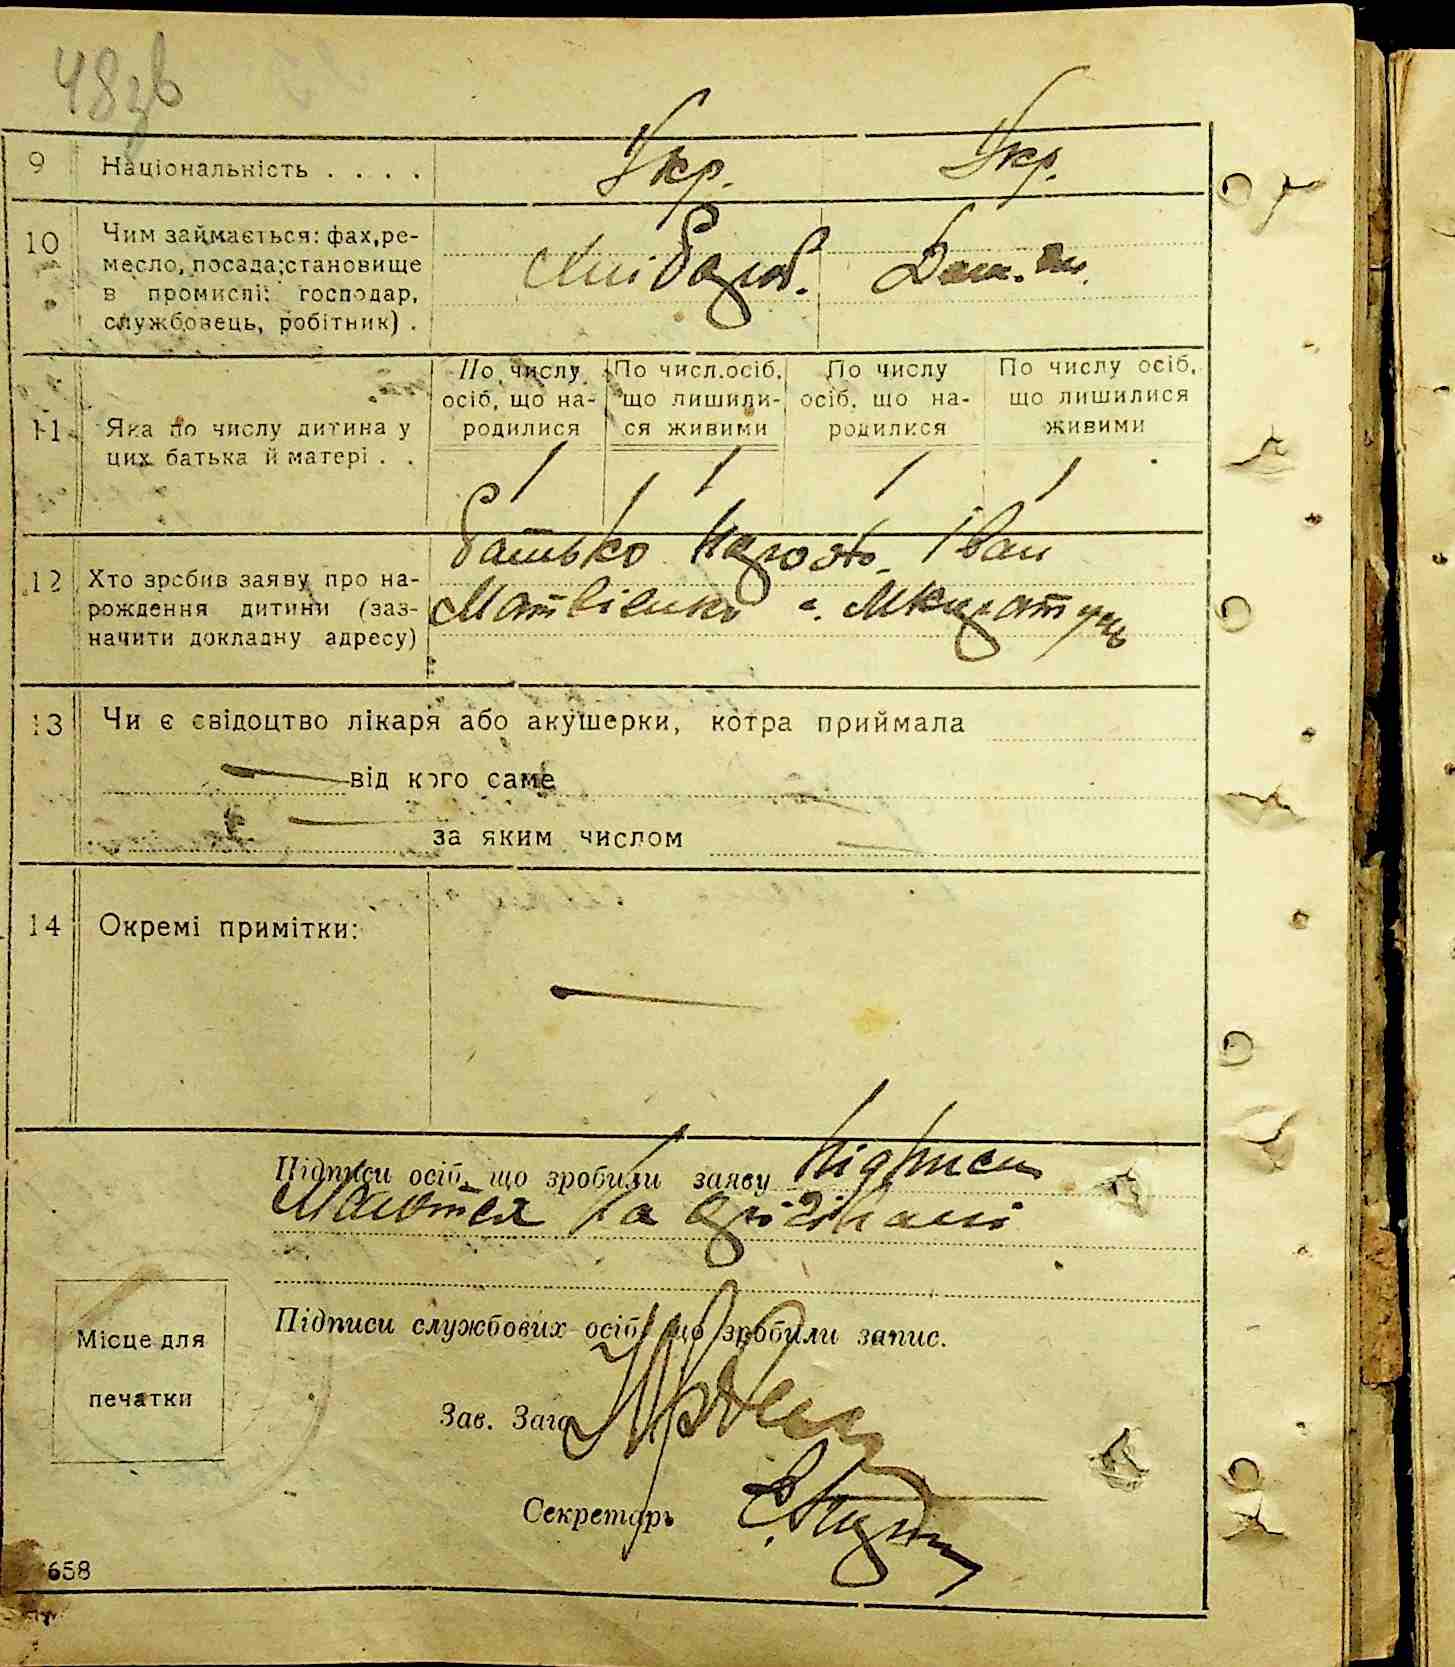 48зв
9 Національність . . . . Укр. Укр.
10 Чим займається: фах, ре-
месло, посада; становище
в промислі: господар,
службовець, робітник) .
Хлібороб. Дом. гос.
По числу осіб, що на-родилися По числ. осіб, що лишили-ся живими По числу осіб, що на-родилися По числу осіб, що лишилися живими
11 Яка по числу дитина у
цих батька й матері . .
1 1 1 1
12 Хто зробив заяву про на-
рождення дитини (заз-
начити докладну адресу)
батько Іван
Матвієнко
13 Чи є свідоцтво лікаря або акушерки, котра приймала
від кого саме
за яким числом
14 Окремі примітки:
Підписи осіб, що зробили заяву підписи
маються на оригіналі
Підписи службових осіб, що зробили запис.
Місце для
печатки
Зав. Загс
Секретарь
658